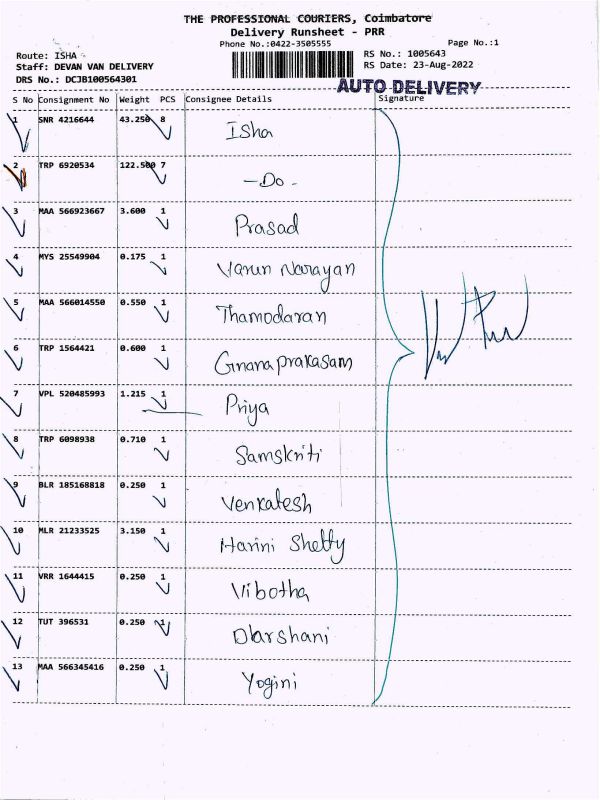 THE PROFESSIONAL COURIERS, Coimbatore
Delivery Runsheet - PRR
Phone No.:0422-3505555 Page No.:1
Route: ISHA RS No.: 1005643
Staff: DEVAN VAN DELIVERY RS Date: 23-Aug-2022
DRS No.: DCJB100564301
AUTO DELIVERY
S No Consignment No Weight PCS Consignee Details Signature
1 SNR 4216644 43.250 8 Isha
2 TRP 6920534 122.500 7 -Do-
3 MAA 566923667 3.600 1 Prasad
4 MYS 25549904 0.175 1 Varun Narayan
5 MAA 566014550 0.550 1 Thamodaran
6 TRP 1564421 0.600 1 Gnanaprakasam
7 VPL 520485993 1.215 1 Priya
8 TRP 6098938 0.710 1 Samskriti
9 BLR 185168818 0.250 1 Venkatesh
10 MLR 21233525 3.150 1 Harini Shetty
11 VRR 1644415 0.250 1 Vibotha
12 TUT 396531 0.250 1 Dharshani
13 MAA 566345416 0.250 1 Yogini